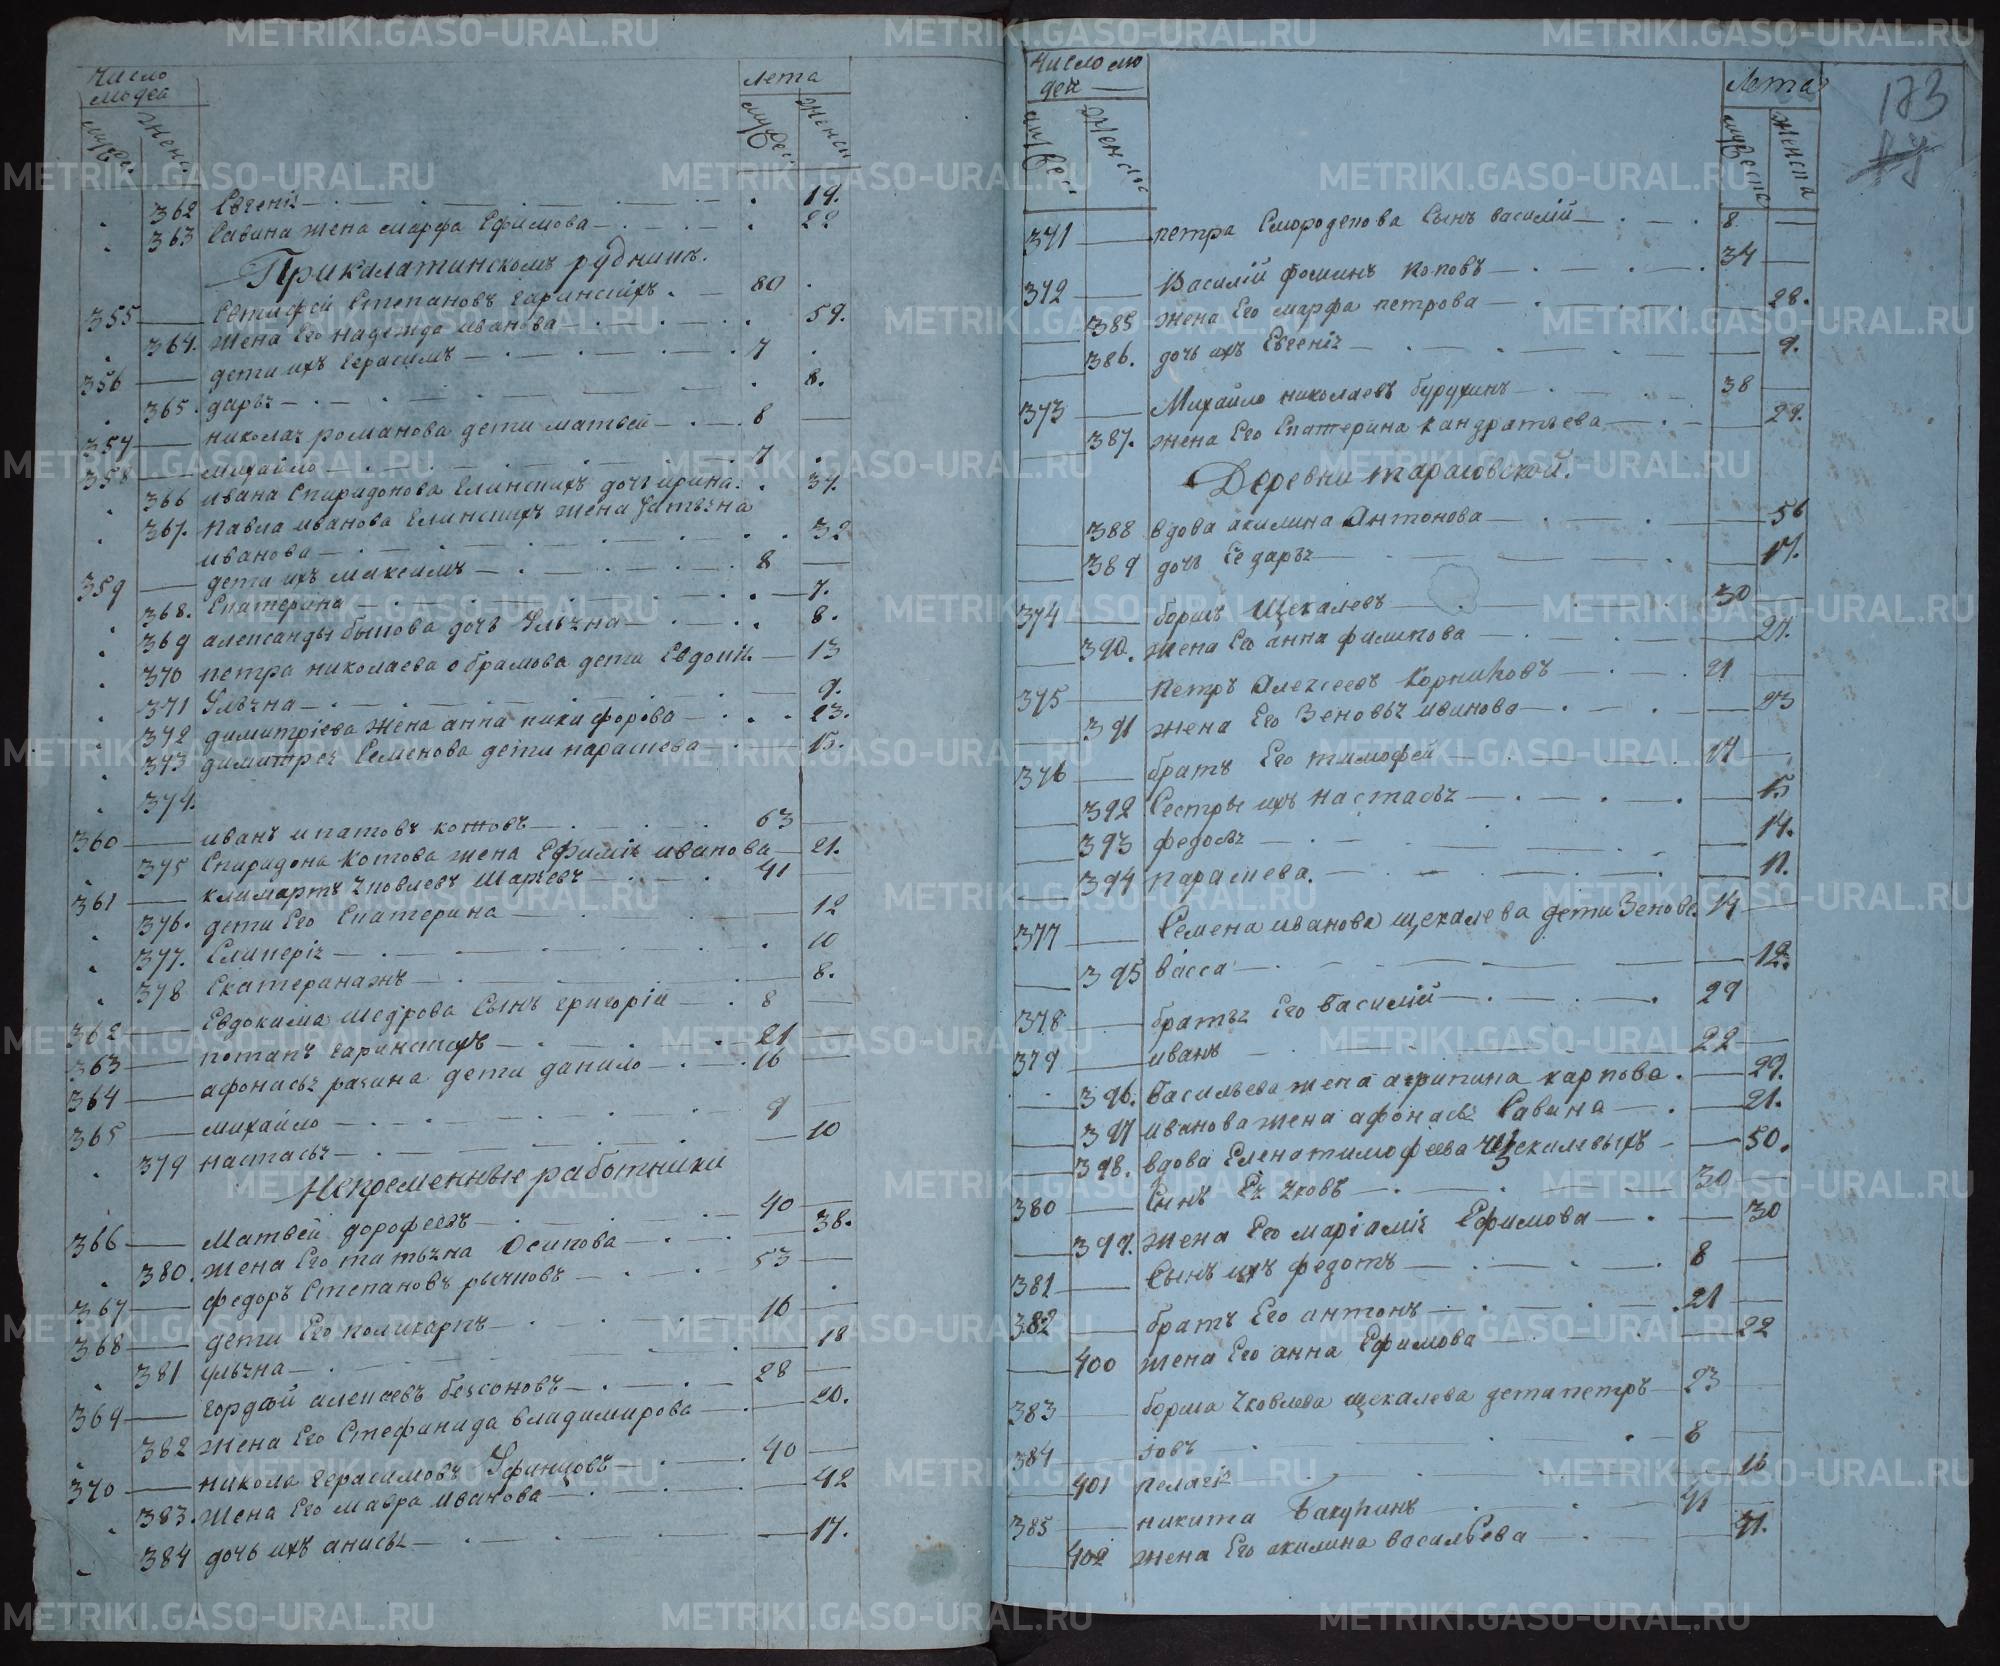 Число людей
Лета
мужес.
Женс.
мужес.
Женск.
362 Евгенія 19.
363 Савина жена марфа Ефимова 22
При калатинскомъ рудникѣ.
355 Евтифей Степановъ гаринскихъ 80
364. жена Его надежда иванова 59.
356 дети ихъ герасимъ 7
365. дарья 8.
357 николая романова дети матвей 8
358 михайло 7
366 ивана Спиридонова Елинскихъ дочь ирина 37.
367. павла иванова Елинскихъ жена Татьяна
иванова 32
359 дети ихъ максимъ 8
368. Екатерина 7.
369 александы быкова дочь Ульяна 8.
370 петра николаева обрамова дети Евдоки. 13
371 Ульяна 9.
372 димитріева жена анна никифорова 23.
373 димитрея Семенова дети парасшева 15.
374.
360 иванъ ипатовъ котовъ 63
375 Спиридона котова жена Ефимія иванова 21.
361 климартъ Яковлевъ Шаряевъ 41
376. дети Его Екатерина 12
377. Гликерія 10
378 Екатерина жъ 8.
362 Евдокима шедрова Сынъ григорій 8
363 потапъ гаринскихъ 21
364 афонасья рагина дети данило 16
365 михайло 9
379 настасья 10
Непременные работники
366 Матвей дорофеевъ 40
380. жена Его татьяна Осипова 38.
367 федоръ Степановъ рычковъ 53
368 дети Его поликарпъ 16
381 ульяна 18
369 гордѣй алексѣевъ безсоновъ 28
382 жена Его Стефанида владимирова 20.
370 никола герасимовъ Уфинцовъ 40
383. жена Его мавра иванова 42
384 дочь ихъ анисья 17.
Число людей
Лета
173
мужес.
Женска
мужеска
женска
371 петра Смороденова Сынъ василій 8
372 Василій фоминъ поповъ 34
385 жена Его марфа петрова 28.
386. дочь ихъ Евгенія 9.
373 Михайло николаевъ бурухинъ 38
387. жена Его Екатерина кандратьева 29.
Деревни тарасовской.
388 вдова акилина Антонова 56
389 дочь Ее дарья 17.
374 борисъ Щекалевъ 30
390. жена Его анна филипова 27.
375 петръ Алексеевъ корниковъ 21
391 жена Его Зеновья иванова 23
376 братъ Его тимофей 17
392 Сестры ихъ настасья 15
393 федосья 14.
394 парасшева. 11.
377 Семена иванова щекалева дети Зенове. 14
395 васса 12.
378 братья Его василій 29
379 иванъ 22
396. Васильева жена агрипина карпова. 29.
397 иванова жена афонасья Савина 21.
398. вдова Елена тимофеева щекалевыхъ 50.
380 Сынъ Ея Яковъ 30
399. жена Его маріамія Ефимова 30
381 Сынъ ихъ федотъ 8
382 братъ Его антонъ 21
400 жена Его анна Ефимова 22
383 бориса Яковлева щекалева дети петръ 23
384 Іовъ 8
401 пелагія 16
385 никита Бакунинъ 41
402 жена Его акилина васильева 41.
METRIKI.GASO-URAL.RU